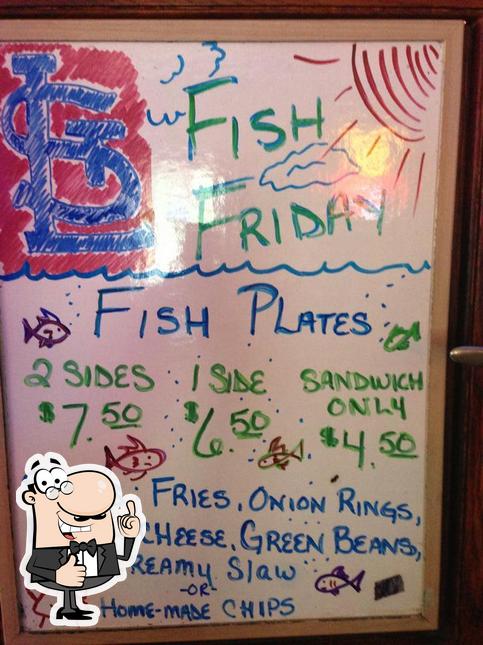 STL
FISH
FRIDAY
FISH PLATES
2 SIDES 1 SIDE SANDWICH ONLY
$7.50 $6.50 $4.50
FRIES, ONION RINGS,
CHEESE, GREEN BEANS,
REAMY Slaw
-OR-
HOME-MADE CHIPS